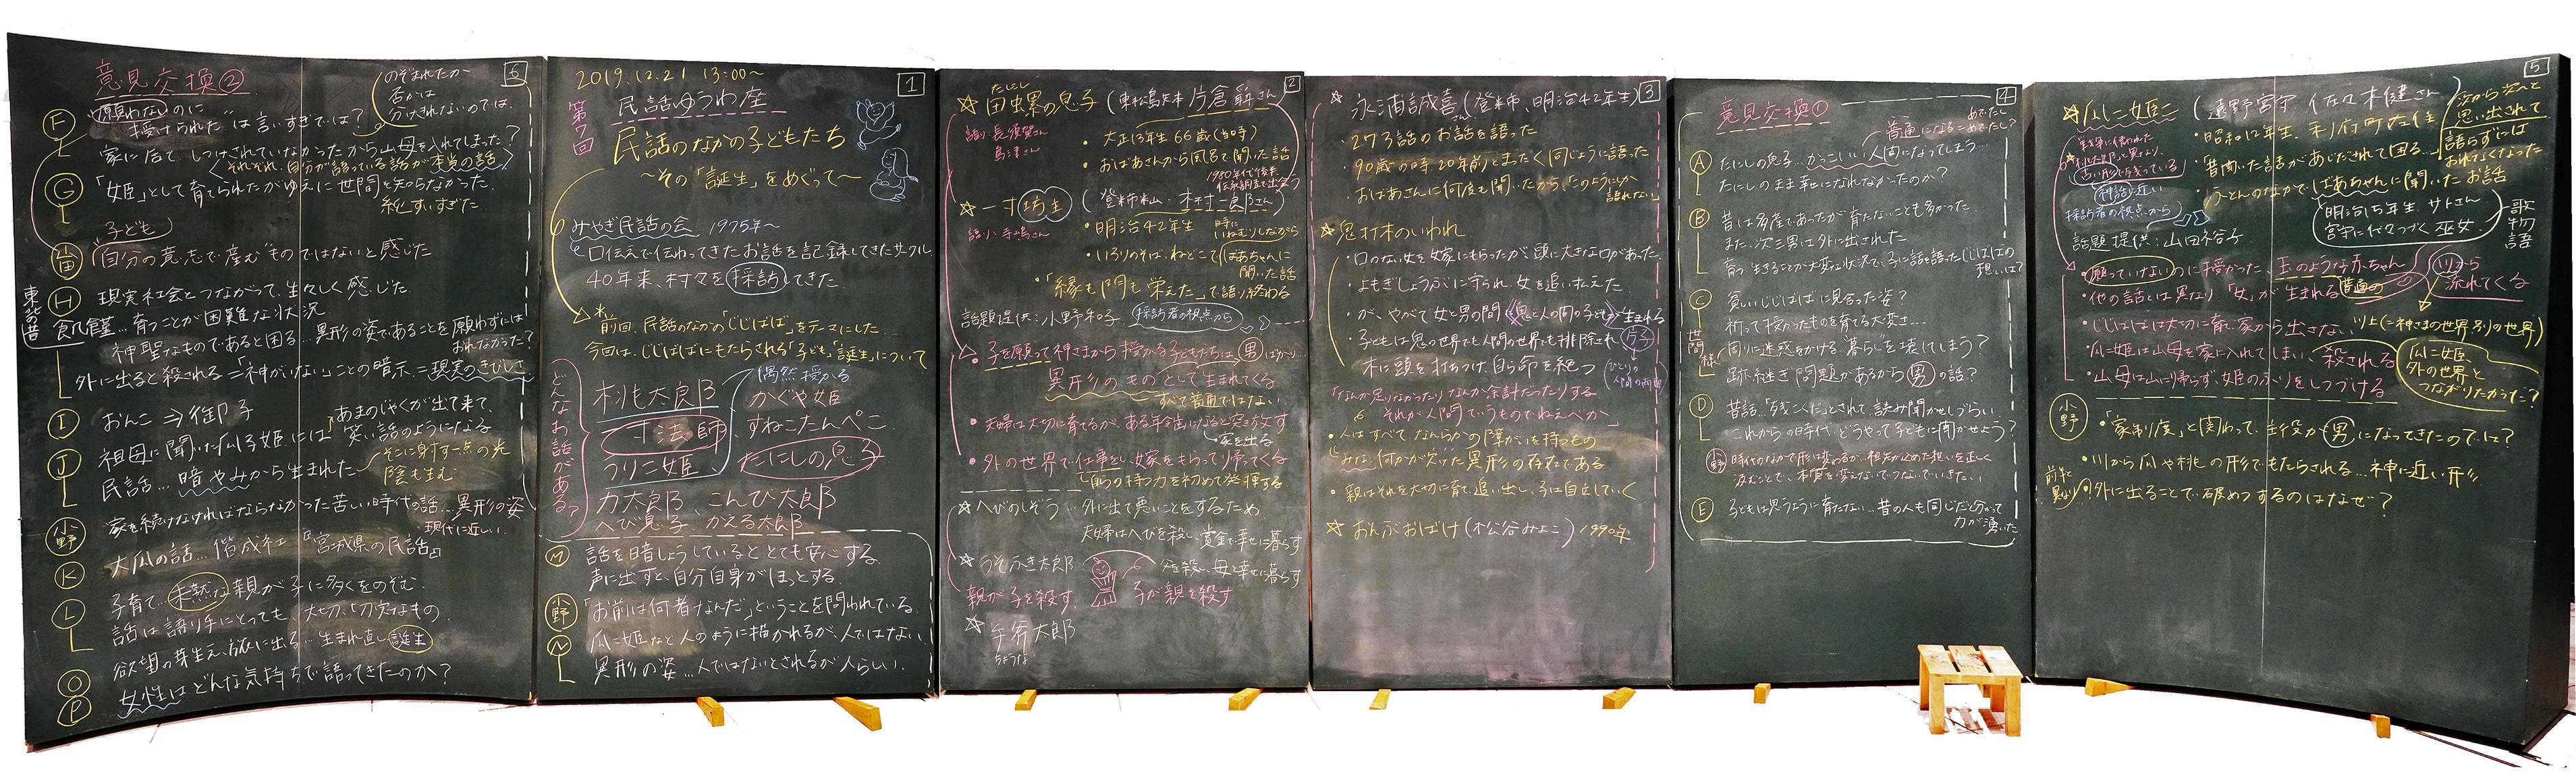 1
2019.12.21 13:00〜
第7回 民話ゆうわ座
民話のなかの子どもたち
〜その「誕生」をめぐって〜
みやぎ民話の会 1975年〜
口伝えで伝わってきたお話を記録してきたサークル
40年来、村々を採訪してきた.
前回、民話のなかの「じじばば」をテーマにした.
今回は、じじばばにもたらされる「子ども」「誕生」について
どんなお話がある?
偶然授かる
桃太郎
かぐや姫
一寸法師
すねこたんぺこ
うりこ姫
たにしの息子
力太郎、こんび太郎
へび息子、かえる太郎
M 話を暗しょうしていると とても安心する.
声に出すと、自分自身がほっとする.
小野 「お前は何者なんだ」ということを問われている.
N 瓜こ姫など人のように描かれるが、人ではない
異形の姿…人ではないとされるが人らしい.
2
☆田虫累の息子 (東松島矢本 片倉 さん)
たにし
語り:長須賀さん
島津さん
・大正13年生 66歳(当時)
・おばあさんから風呂で聞いた話
1980年代後半
伝承調査で出会う
☆一寸坊主 (登米市米山・木村一郎さん)
語り:寺嶋さん
・明治42年生
時に
いねむりしながら
・いろりのそば、ねどこで ばあちゃんに
聞いた話
・「縁も門も栄えた」で語り終わる
話題提供:小野和子 採訪者の視点から
・子を願って神さまから授かる子どもたちは男ばかり…
異形のものとして生まれてくる
すべて普通ではない
・夫婦は大切に育てるが、ある年令になると突き放す
家を出る
・外の世界で仕事をし、嫁をもらって帰ってくる
自らの持つ力を初めて発揮する
☆へびのしぞう…外に出て悪いことをするため
夫婦はへびを殺し、賞金で幸せに暮らす
☆うそふき太郎
父を殺し、母と幸せに暮らす.
親が子を殺す. 子が親を殺す
☆手斧太郎
ちょうな
3
☆永浦誠喜さん(登米市、明治42年生)
・273話のお話を語った
・90歳の時、20年前とまったく同じように語った
・おばあさんに何度も聞いたから、「このようにしか
語れない」
☆鬼打木のいわれ
・口のない女を嫁にもらったが、頭に大きな口があった.
・よもぎしょうぶに守られ 女を追い払えた
・が、やがて女と男の間《鬼と人の間の子ども》が生まれる
・子どもは鬼の世界でも人間の世界でも排除され 片子
木に頭を打ちつけ、自ら命を絶つ
ひとりの
人間の両面
「なんか足りなかったり なんか余計だったりする
それが人間ていうものでねえべか」
・人はすべて なんらかの「障がい」を持つもの
みな、何かが欠けた異形の存在である
・親はそれを大切に育て、追い出し、子は自立していく
☆おんぶおばけ(松谷みよこ) 1990年
4
意見交換①
めでたし
普通になる=めでたし?
A たにしの息子…かっこいい人間になってしまう…
たにしのまま幸せになれなかったのか?
B 昔は多産であったが育たないことも多かった
また、次三男は外に出された
育つ、生きることが大変な状況で、子に話を語ったじじばばの
想いは?
C 貧しいじじばばに見合った姿?
祈って授かったものを育てる大変さ…
世間様に
周りに迷惑をかける.暮らしを壊してしまう?
跡継ぎ問題があるから男の話?
D 昔話…「残こくだ」とされて、読み聞かせしづらい.
これからの時代、どうやって子どもに聞かせよう?
小野 時代のなかで形は変わるが、祖先が込めた想いを正しく
汲むことで、本質を変えないでつないでいきたい
E 子どもは思うように育たない…昔の人も同じだと分かって
力が湧いた
5
☆瓜こ姫 (遠野宮守 佐々木健さん)
次から次へと
思い出されて
語らずには
おれなくなった
・昭和12年生、利府町在住
・昔聞いた話があじだされて困る…
・ふとんのなかで ばあちゃんに聞いたお話
明治15年生.サトさん
宮守に代々つづく巫女
歌物語
古い形が残っている
神話に近い
採訪者の視点から
話題提供:山田裕子
・願っていないのに授かった、玉のような赤ちゃん
川から
流れてくる
・他の話とは異なり「女」が生まれる 普通の
川上(=神さまの世界、別の世界)
・じじばばは大切に育て、家から出さない
・瓜こ姫は山母を家に入れてしまい、殺される
・山母は山に帰らず、姫のふりをしつづける
瓜こ姫、
外の世界と
つながりたかった?
小野 ・「家制度」と関わって、主役が男になってきたのでは?
・川から瓜や桃の形でもたらされる…神に近い形
前半と
異なり
・外に出ることで破めつするのはなぜ?
6
意見交換②
のぞまれたか
否かは
分けきれないのでは.
F 願わないのに
"授けられた"は言いすぎでは?
家に居て、しつけされていなかったから山母を入れてしまった?
それぞれ、自分が語っている話が本当の話
G 「女姫」として育てられたがゆえに世間を知らなかった.
純すいすぎた
子ども
山田 "自分の意志で産む"ものではないと感じた
H 現実社会とつながって、生々しく感じた
東北の昔
飢饉…育つことが困難な状況
神聖なものであると困る…異形の姿であることを願わずには
おれなかった?
外に出ると殺される=「神がいない」ことの暗示、=現実のきびしさ
I おんこ ⇒ 御子
J 祖母に聞いた瓜子姫には あまのじゃくが出て来て、
笑い話のようになる
民話…暗やみから生まれた
そこに射す一点の光
陰も生む
小野 家を続けなければならなかった苦しい時代の話…異形の姿
・現代に近しい
K 大瓜の話…偕成社『宮城県の民話』
L 子育て…未熟な親が子に多くをのぞむ.
話は語り手にとっても、大切、切実なもの.
欲望の芽生え、旅に出る…生まれ直し 誕生
O
P 女性はどんな気持ちで語ってきたのか?